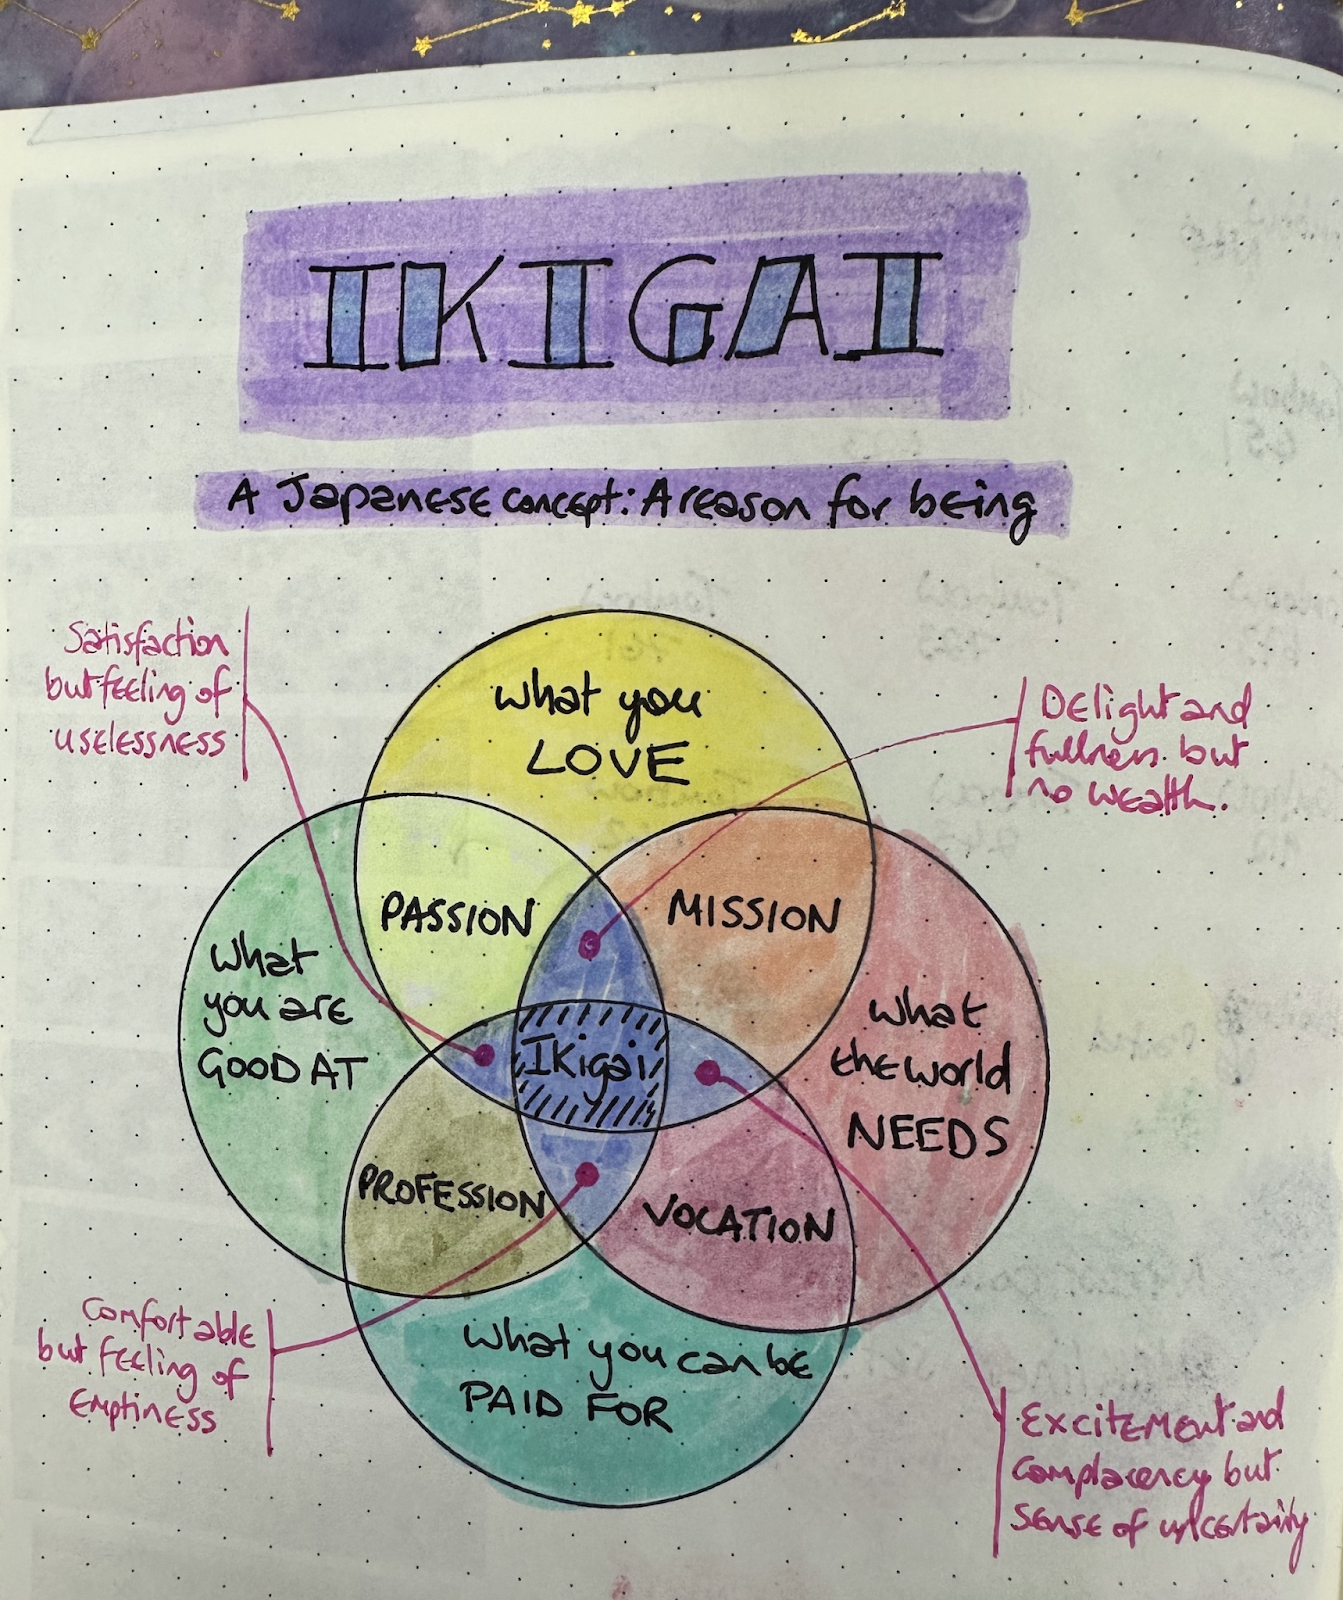 IKIGAI
A Japanese concept: A reason for being
Satisfaction
but feeling of
uselessness
What you
LOVE
Delight and
fullness but
no wealth.
PASSION
MISSION
What
you are
GOOD AT
What
the world
NEEDS
Ikigai
PROFESSION
VOCATION
Comfortable
but feeling of
Emptiness
What you can be
PAID FOR
Excitement and
complacency but
sense of uncertainty